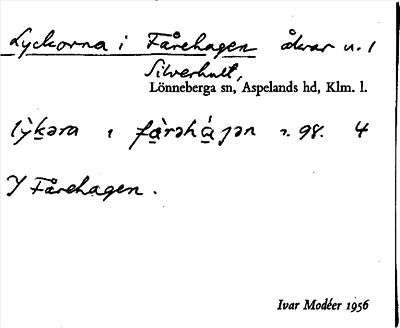 Lyckorna i Fårehagen åkrar u. 1
Silverhult,
Lönneberga sn, Aspelands hd, Klm. l.
98. 4
I Fårehagen.
Ivar Modéer 1956